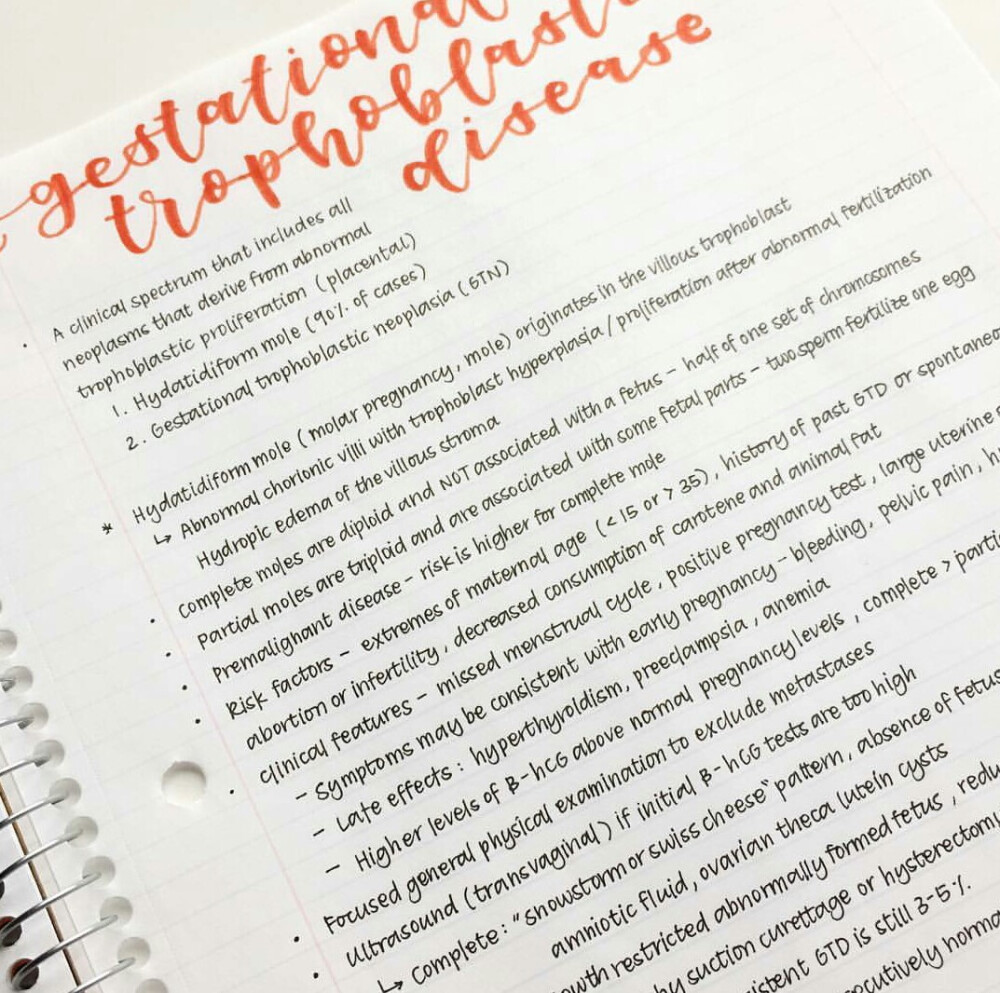 gestational
trophoblast
disease
• A clinical spectrum that includes all
neoplasms that derive from abnormal
trophoblastic proliferation (placental)
1. Hydatidiform mole (90% of cases)
2. Gestational trophoblastic neoplasia (GTN)
* Hydatidiform mole (molar pregnancy, mole) originates in the villous trophoblast
↳ Abnormal chorionic villi with trophoblast hyperplasia / proliferation after abnormal fertilization
Hydropic edema of the villous stroma
• Complete moles are diploid and NOT associated with a fetus - half of one set of chromosomes
• Partial moles are triploid and are associated with some fetal parts - two sperm fertilize one egg
• Premalignant disease - risk is higher for complete mole
• Risk factors - extremes of maternal age (<15 or >35), history of past GTD or spontaneo
abortion or infertility, decreased consumption of carotene and animal fat
• Clinical features - missed menstrual cycle, positive pregnancy test, large uterine
- Symptoms may be consistent with early pregnancy - bleeding, pelvic pain, h
- Late effects: hyperthyroidism, preeclampsia, anemia
- Higher levels of B-hCG above normal pregnancy levels, complete > parti
• Focused general physical examination to exclude metastases
• Ultrasound (transvaginal) if initial B-hCG tests are too high
↳ Complete: "snowstorm or swiss cheese" pattern, absence of fetus
amniotic fluid, ovarian theca lutein cysts
owth restricted abnormally formed fetus, redu
y suction curettage or hysterectomy
sistent GTD is still 3-5%.
ecutively norma